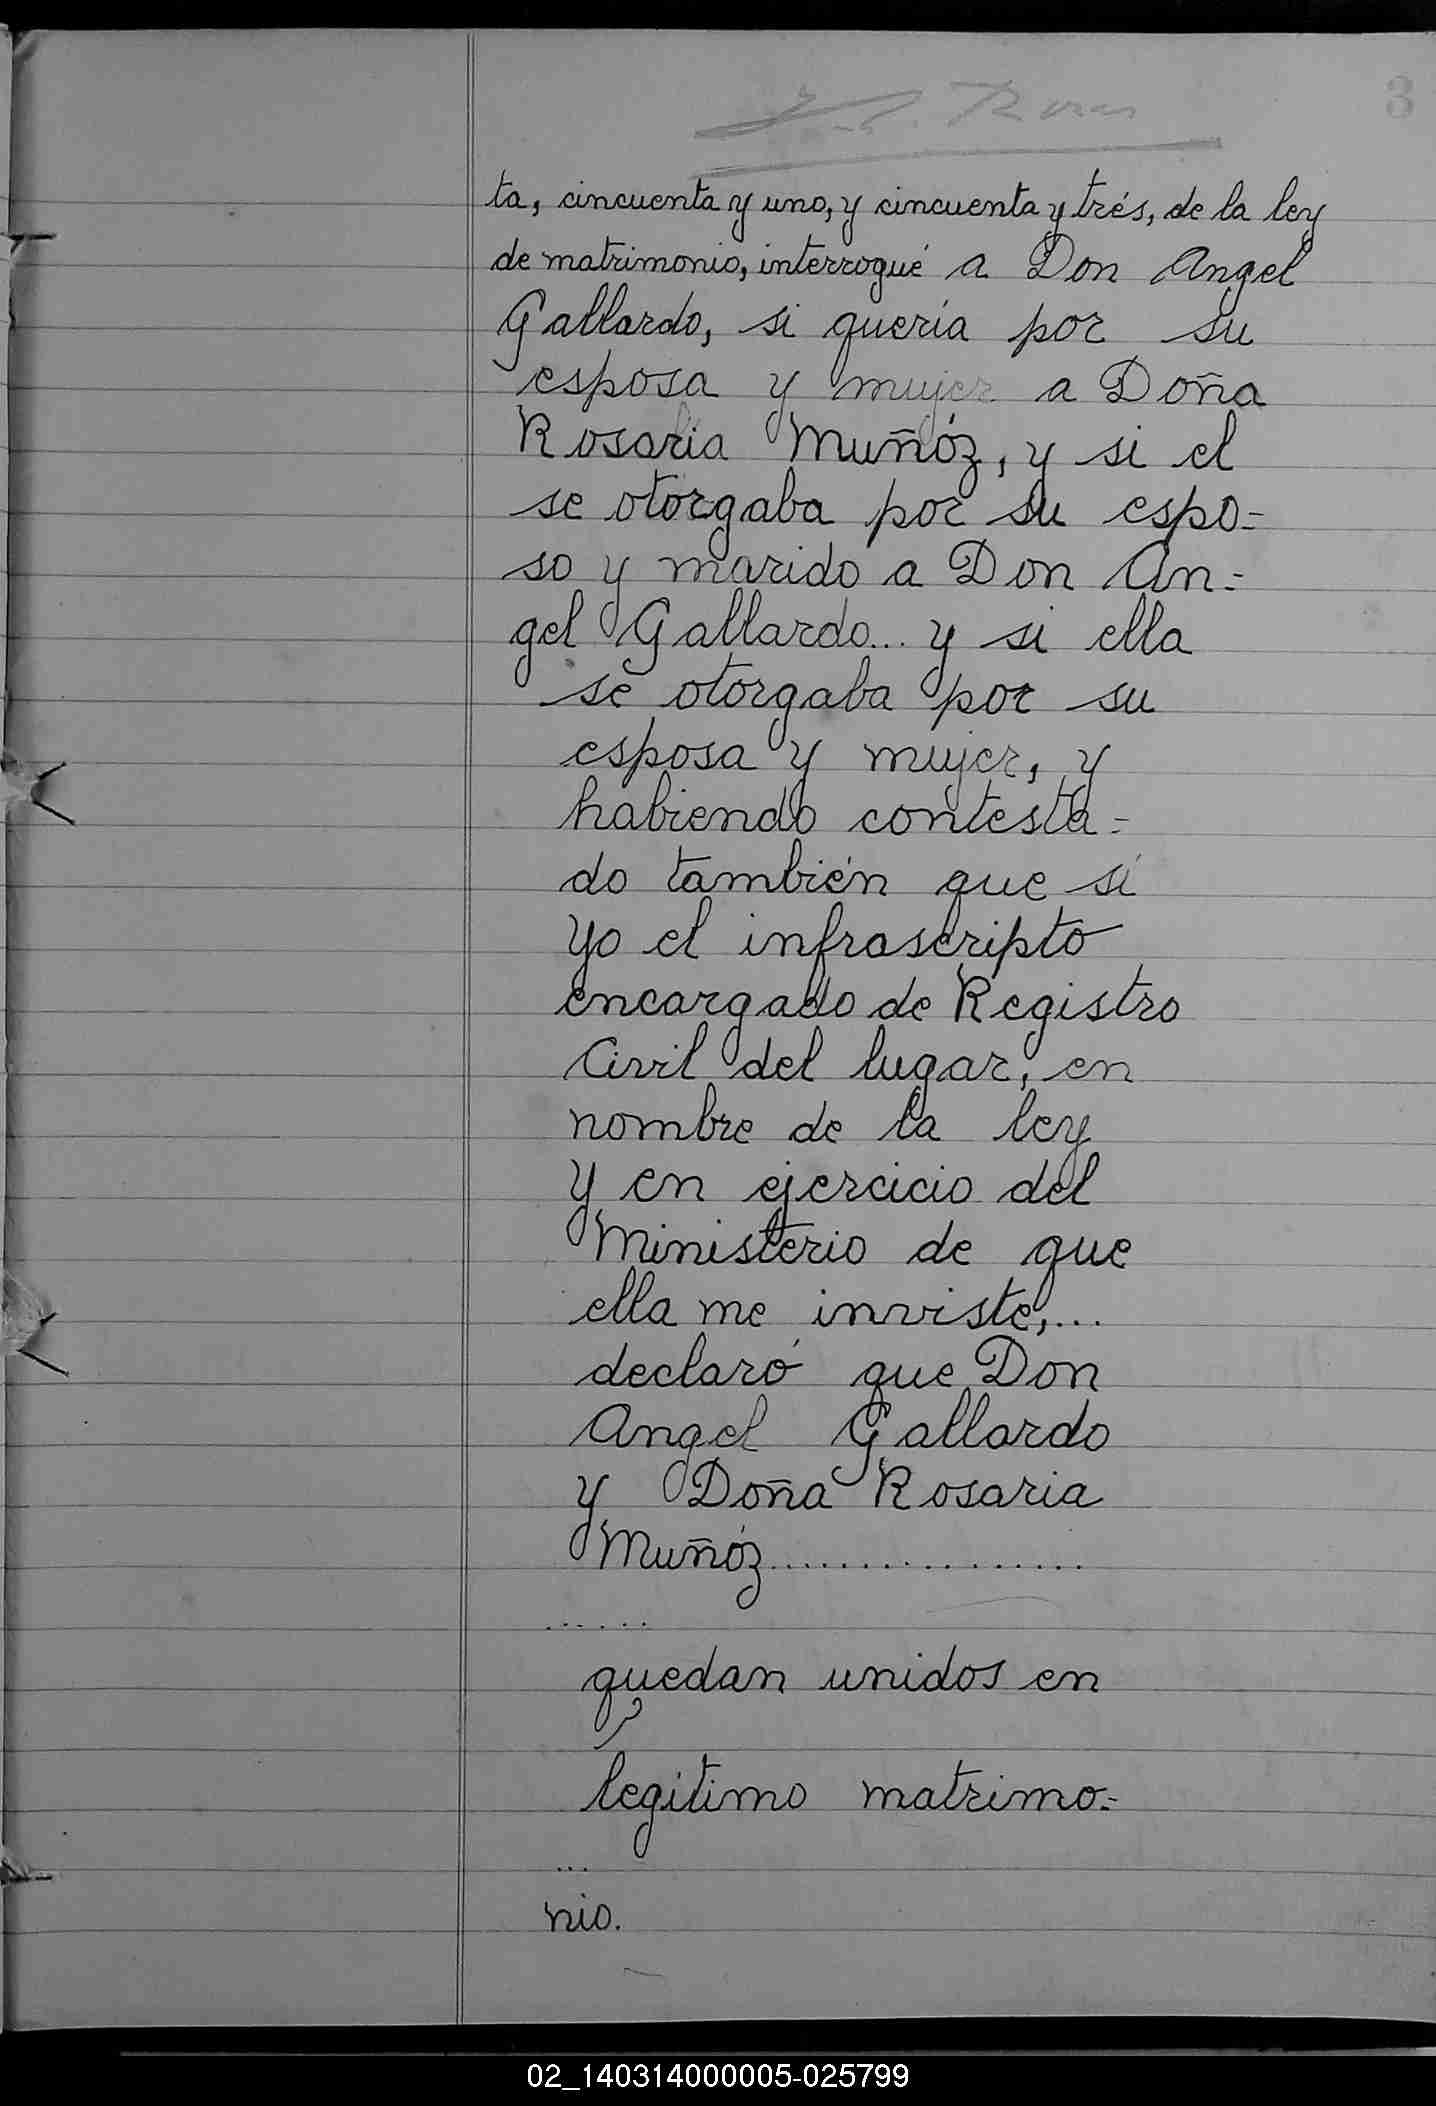 3
ta, cincuenta y uno, y cincuenta y trés, de la ley
de matrimonio, interrogué a Don Angel
Gallardo, si quería por su
esposa y mujer a Doña
Rosaria Muñóz, y si el
se otorgaba por su espo=
so y marido a Don An=
gel Gallardo... y si ella
se otorgaba por su
esposa y mujer, y
habiendo contesta=
do tambien que sí
Yo el infrascripto
encargado de Registro
Civil del lugar, en
nombre de la ley
y en ejercicio del
Ministerio de que
ella me inviste,...
declaró que Don
Angel Gallardo
y Doña Rosaria
Muñóz.................
......
quedan unidos en
legítimo matrimo=
...
nio.
02_140314000005-025799